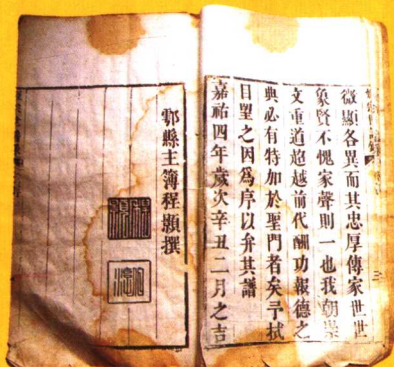 微顯各異而其忠厚傳家世世
象賢不愧家聲則一也我朝崇
文重道超越前代酬功報德之
典必有特加於聖門者矣予拭
目望之因為序以弁其譜
嘉祐四年歲次辛丑二月之吉
鄠縣主簿程顥撰
程顥